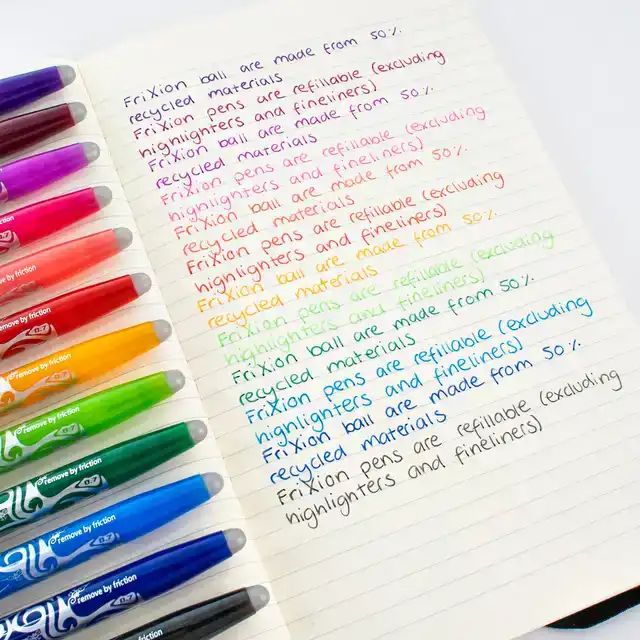 FriXion ball are made from 50%
recycled materials
FriXion pens are refillable (excluding
highlighters and fineliners)
FriXion ball are made from 50%
recycled materials
FriXion pens are refillable (excluding
highlighters and fineliners)
FriXion ball are made from 50%
recycled materials
FriXion pens are refillable (excluding
highlighters and fineliners)
FriXion ball are made from 50%
recycled materials
FriXion pens are refillable (excluding
highlighters and fineliners)
FriXion ball are made from 50%
recycled materials
FriXion pens are refillable (excluding
highlighters and fineliners)
FriXion ball are made from 50%
recycled materials
FriXion pens are refillable (excluding
highlighters and fineliners)
friction
by friction
remove by friction
remove by friction
remove by friction
remove by friction
remove by friction
0.7
remove by friction
0.7
remove by friction
0.7
remove by friction